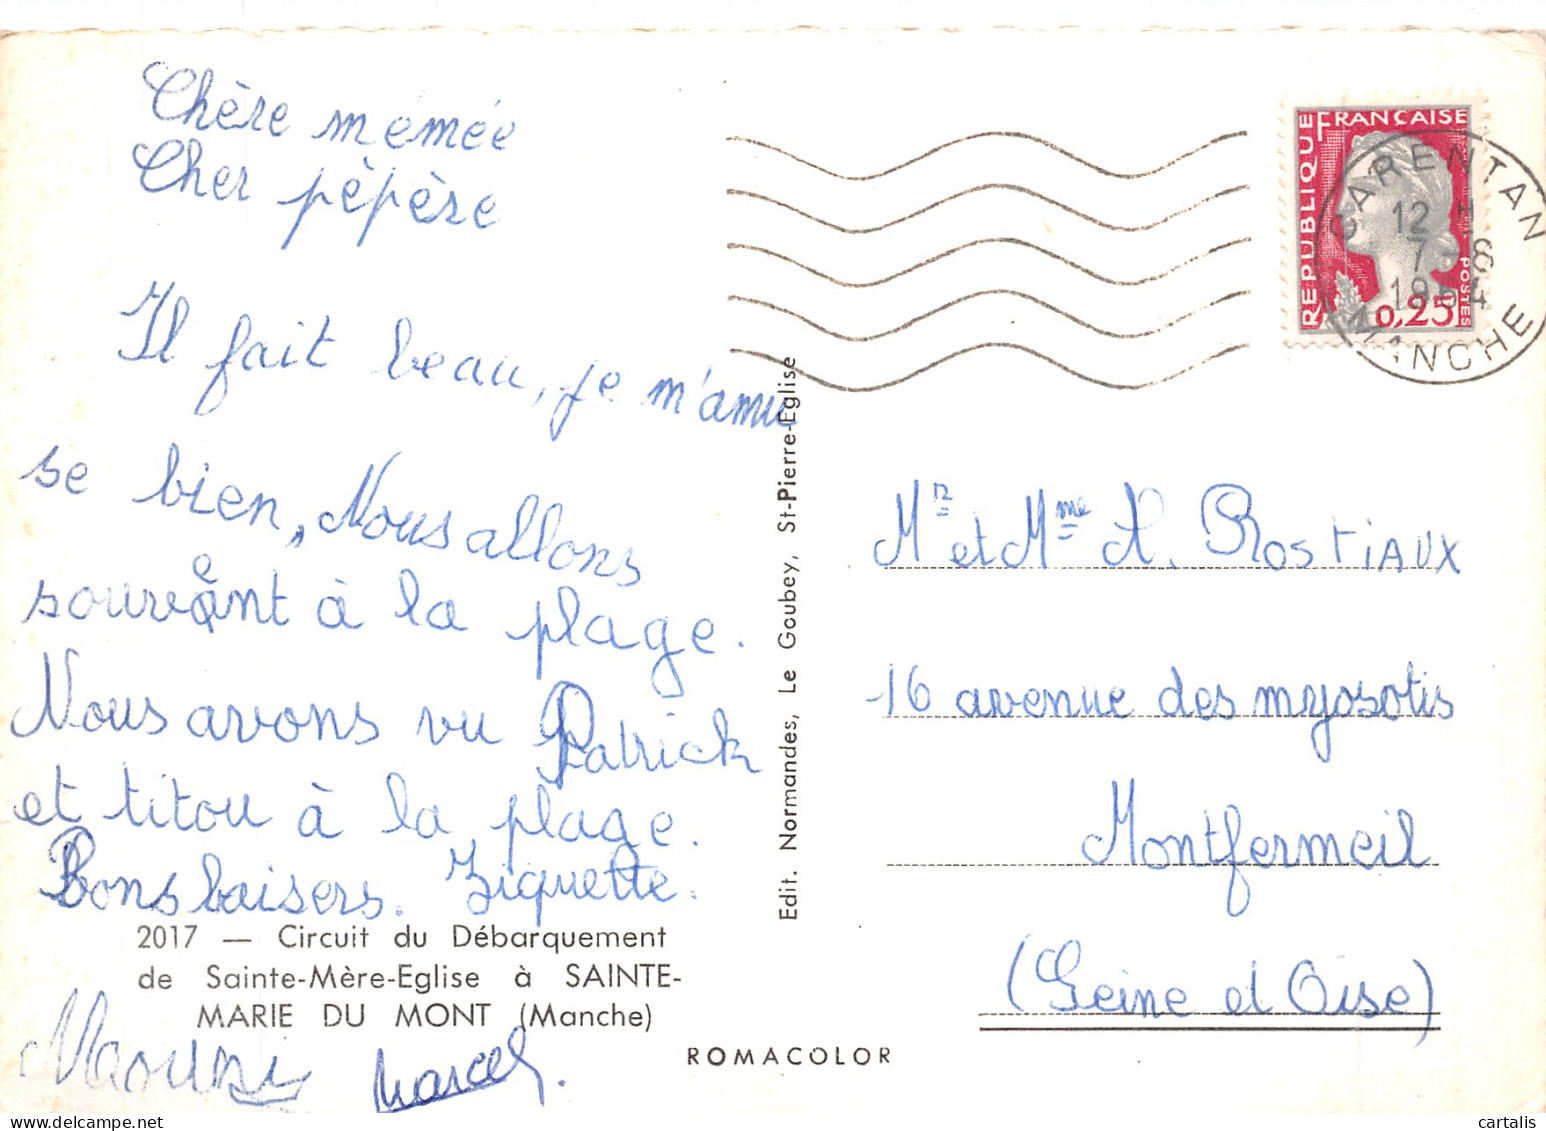 Chère mémée
Cher pèpère
Il fait beau, je m'amu
se bien, Nous allons
souvent à la plage.
Nous avons vu Patrick
et titou à la plage.
Bons baisers. Ziquette.
2017 — Circuit du Débarquement
de Sainte-Mère-Eglise à SAINTE-
MARIE DU MONT (Manche)
Marcel.
Edit. Normandes, Le Goubey, St-Pierre-Eglise
ROMACOLOR
REPUBLIQUE FRANÇAISE
POSTES
0,25
CARENTAN
12 H
7 - 8
1964
MANCHE
Mr et Mme H. ROSTIAUX
16 avenue des myosotis
Montfermeil
(Seine et Oise)
© cartalis